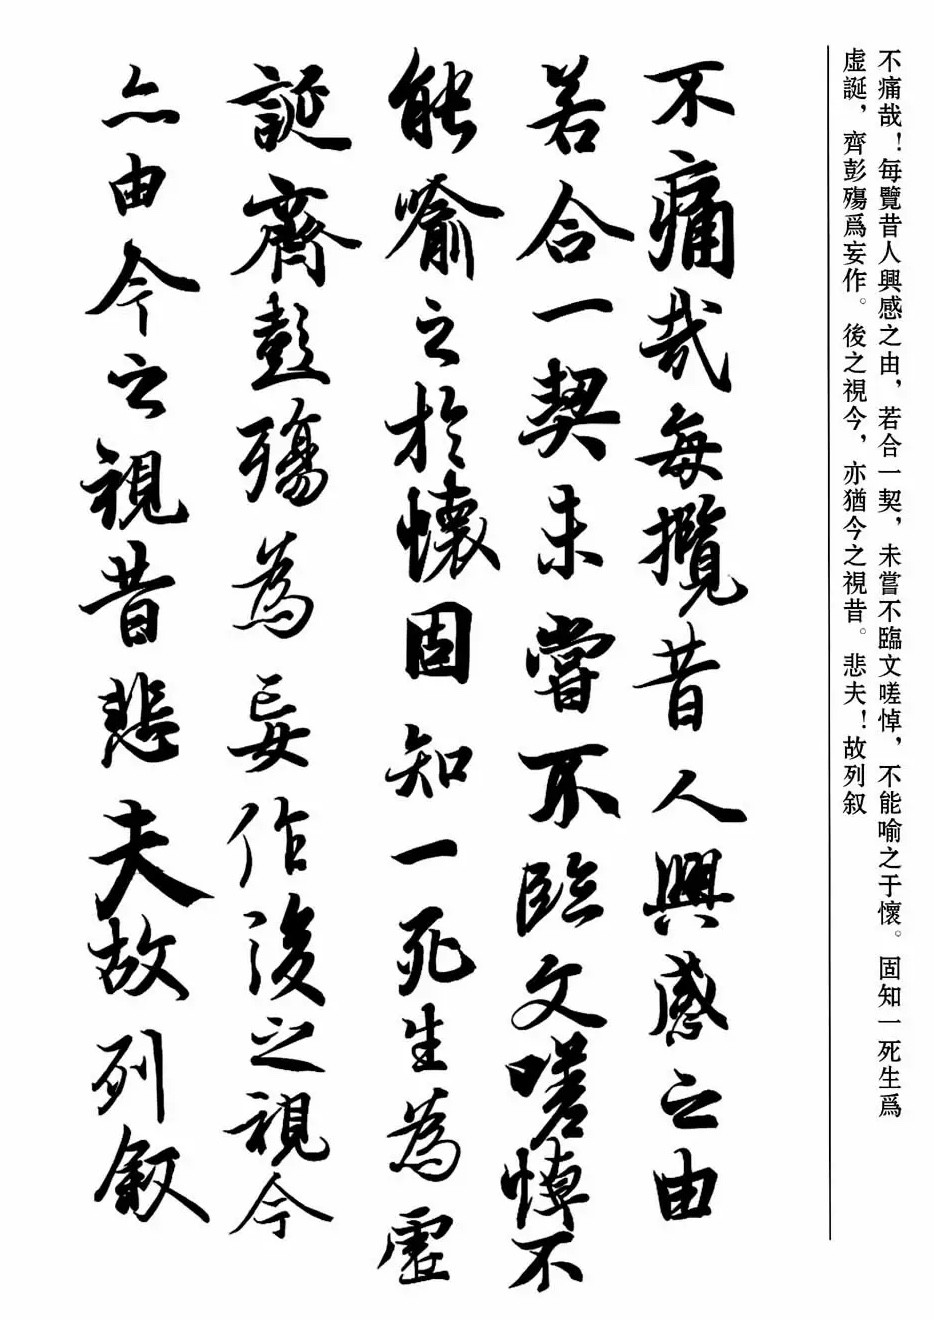 不痛哉！每覽昔人興感之由，若合一契，未嘗不臨文嗟悼，不能喻之于懷。固知一死生爲
虛誕，齊彭殤爲妄作。後之視今，亦猶今之視昔。悲夫！故列叙
不痛哉每攬昔人興感之由
若合一契未嘗不臨文嗟悼不
能喻之於懷固知一死生為虛
誕齊彭殤為妄作後之視今
亦由今之視昔悲夫故列叙